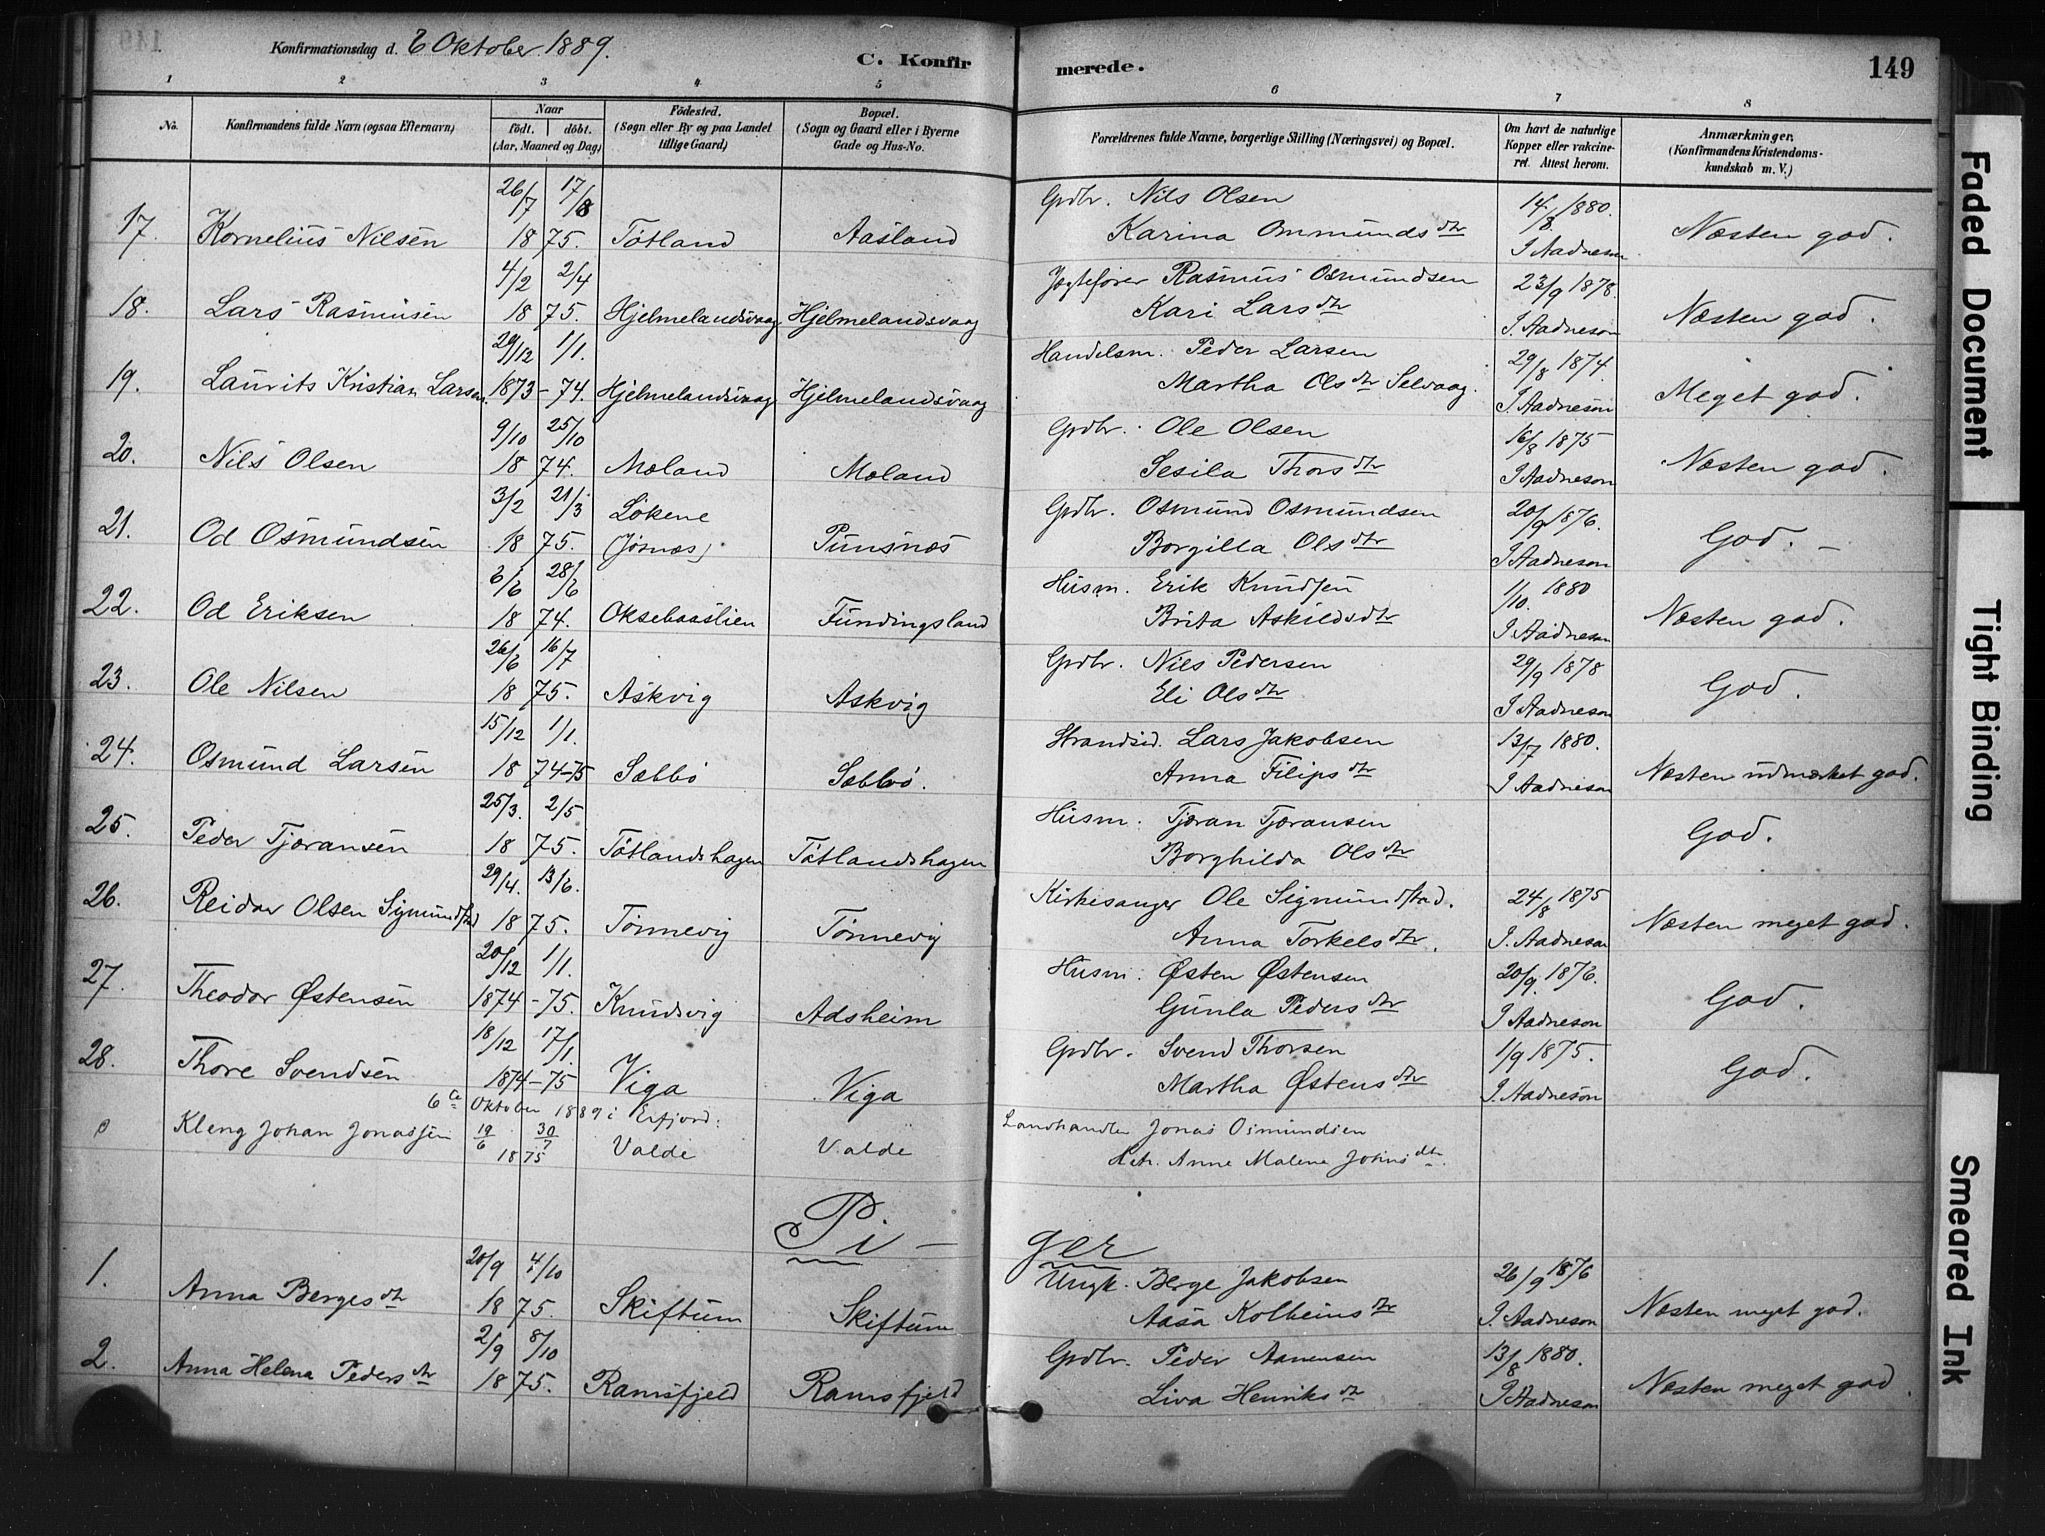 Konfirmationsdag d. 6 Oktober 1889.
C. Konfirmerede.
149
1 2 3 4 5 6 7 8
No. Konfirmandens fulde Navn (ogsaa Efternavn) Naar födt. döbt. (Aar, Maaned og Dag) Födested. (Sogn eller By og paa Landet tillige Gaard) Bopæl. (Sogn og Gaard eller i Byerne Gade og Hus-No. Forældrenes fulde Navne, borgerlige Stilling (Næringsvei) og Bopæl. Om havt de naturlige Kopper eller vakcineret. Attest herom. Anmærkninger. (Konfirmandens Kristendomskundskab m. V.)
26/7 17/8 Grdbr. Nils Olsen 14/8 1880.
17. Kornelius Nilsen 1875. Tötland Aasland Karina Ommundsdtr I Aadneson Næsten god.
4/2 2/4 Jægtefører Rasmus Osmundsen 23/9 1878.
18. Lars Rasmusen 1875. Hjelmelandsvaag Hjelmelandsvaag Kari Larsdtr I. Aadneson Næsten god.
29/12 1/1. Handelsm. Peder Larsen 29/8 1874.
19. Laurits Kristian Larsen. 1873-74. Hjelmelandsvaag Hjelmelandsvaag Martha Olsdtr Selvaag. I. Aadneson Meget god.
9/10 25/10 Grdbr. Ole Olsen 16/8 1875
20. Nils Olsen 1874. Mæland Mæland Sesila Thorsdtr I Aadneson Næsten god.
3/2 21/3 Løkene Grdbr. Osmund Osmundsen 20/9 1876.
21. Od Osmundsen 1875. (Jøsnæs) Punsnæs Borgilla Olsdtr I Aadneson God.
6/6 28/6 Husm. Erik Knudsen 1/10. 1880
22. Od Eriksen 1874. Oksebaaslien Fundingsland Brita Askildsdtr I Aadneson Næsten god.
26/6 16/7 Grdbr. Nils Pedersen 29/9 1878
23. Ole Nilsen 1875. Askvig Askvig Eli Olsdtr I Aadneson God.
15/12 1/1. Strandsid. Lars Jakobsen 13/7 1880.
24. Osmund Larsen 1874-75 Sæbbø Sæbbø. Anna Filipsdtr I Aadneson Næsten udmærket god.
25/3. 2/5 Husm. Tjæran Tjæransen
25. Peder Tjæransen 1875. Tötlandshagen Tötlandshagen Borghilda Olsdtr God.
29/4. 13/6. Kirkesanger Ole Sigmundstad. 24/8 1875
26. Reidar Olsen Sigmundstad 1875. Tønnevig Tønnevig Anna Torkelsdtr. I. Aadneson Næsten meget god.
20/12 1/1. Husm. Østen Østensen 20/9. 1876.
27. Theodor Østensen 1874-75. Knudsvig Adsheim Gunla Pedersdtr I Aadneson God.
18/12 17/1. Grdbr. Svend Thorsen 1/9 1875.
28. Thore Svendsen 1874-75 Viga Viga Martha Østensdtr I. Aadneson God.
6te Oktober 1889 i Erfjord:
Kleng Johan Jonassen 19/6 30/7 1875 Valde Valde Landhandler Jonas Osmundsen
Anne Malene Johnsdtr.
Pi-ger
20/9 4/10 Ungk. Berge Jakobsen 26/9 1876
1. Anna Bergesdtr 1875. Skiftum Skiftum Aasa Kolbeinsdtr I. Aadneson Næsten meget god.
2/9 8/10 Grdbr. Peder Aanensen 13/8 1880.
2. Anna Helena Pedersdtr 1875. Ramsfjeld Ramsfjeld Liva Henriksdtr I Aadneson Næsten meget god.
Faded Document
Tight Binding
Smeared Ink